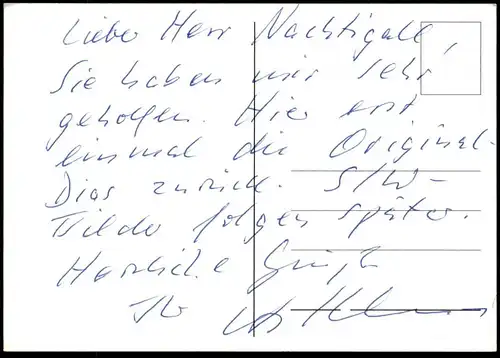 Lieber Herr Nachtigall,
Sie haben mir sehr
geholfen. Hier erst
einmal die Original-
Dias zurück. S/W-
Bilder folgen später.
Herzliche Grüße
Ihr